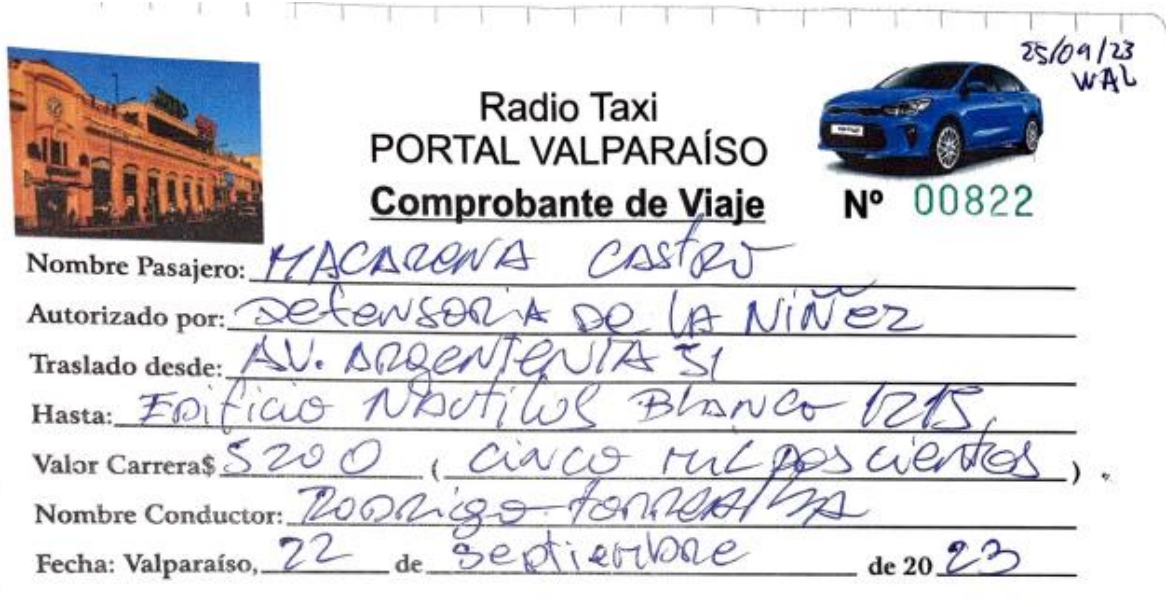 25/09/23
WAL
Radio Taxi
PORTAL VALPARAÍSO
Comprobante de Viaje
Nº 00822
Nombre Pasajero: MACARENA CASTRO
Autorizado por: Defensoria DE LA NIÑez
Traslado desde: AV. ARGENTENTA 51
Hasta: Edificio NAutilus Blanco 1215
Valor Carrera$ 5200 (cinco mil doscientos)
Nombre Conductor: Rodrigo torrealba
Fecha: Valparaíso, 22 de septiembre de 2023